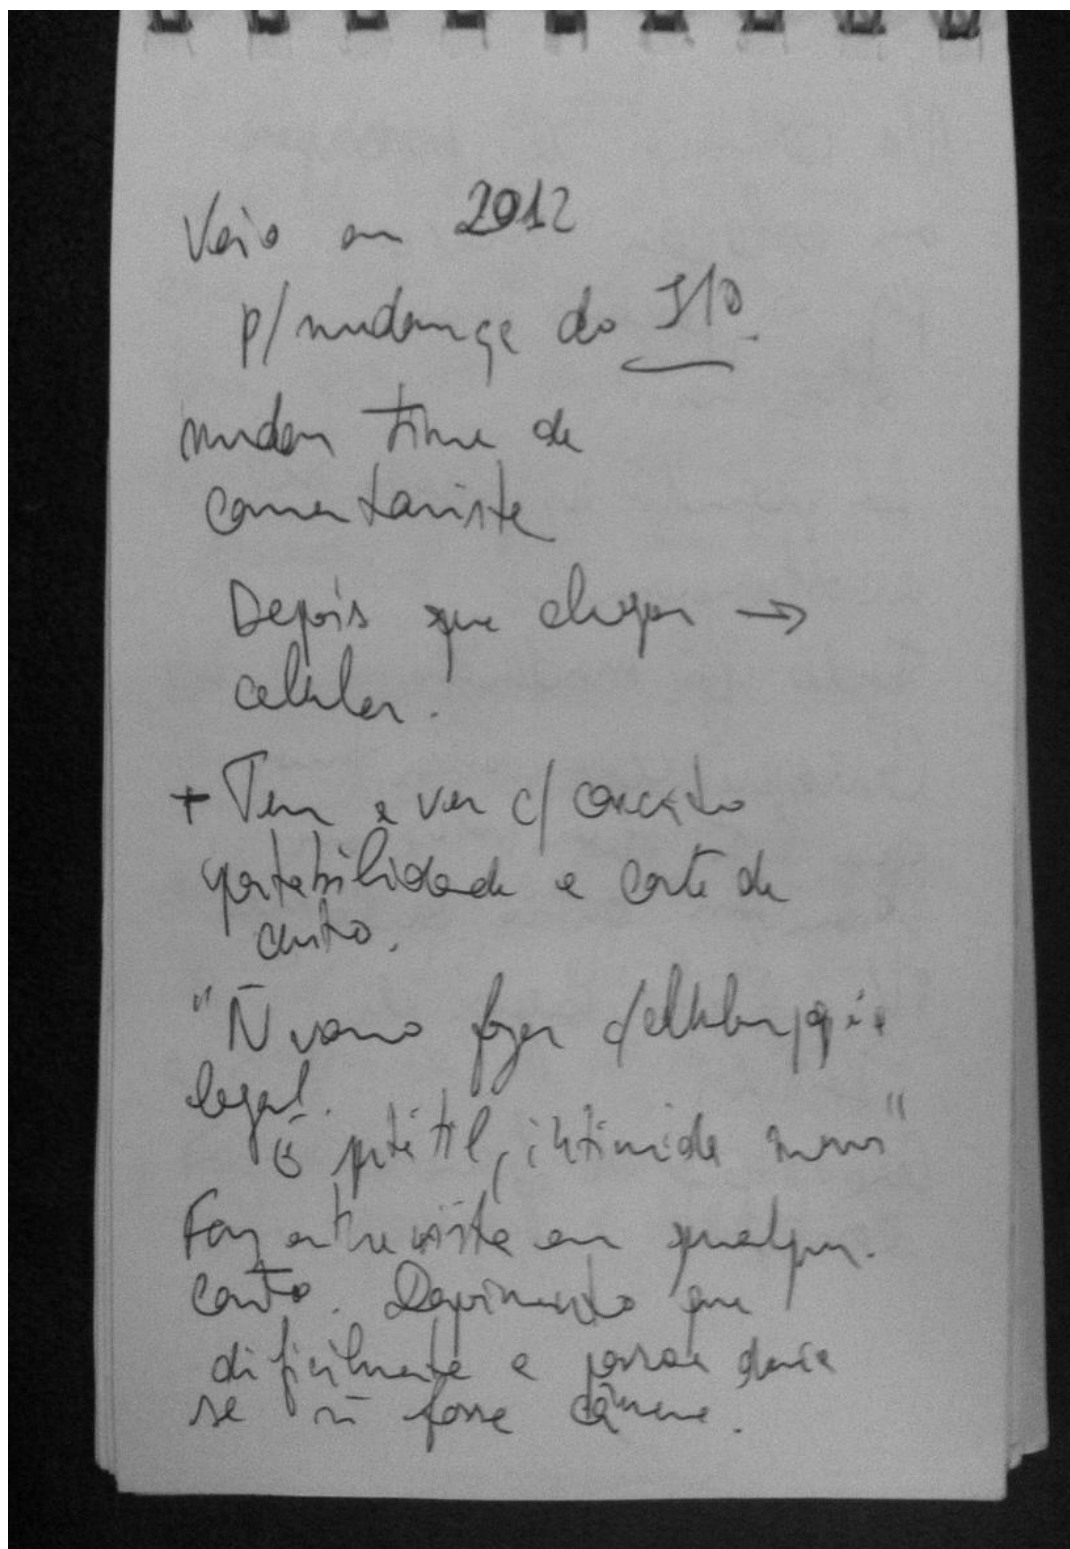 Veio em 2012
p/ mudança do J10.
mudou time de
comentarista
Depois que chegou →
celular.
+ Tem a ver c/ conceito
portabilidade e corte de
custo.
"Ñ vamo fazer c/ celular pq é
legal.
É portátil, intimida menos"
Faz entrevista em qualquer.
canto. Depoimento que
dificilmente a pessoa daria
se ñ fosse câmera.